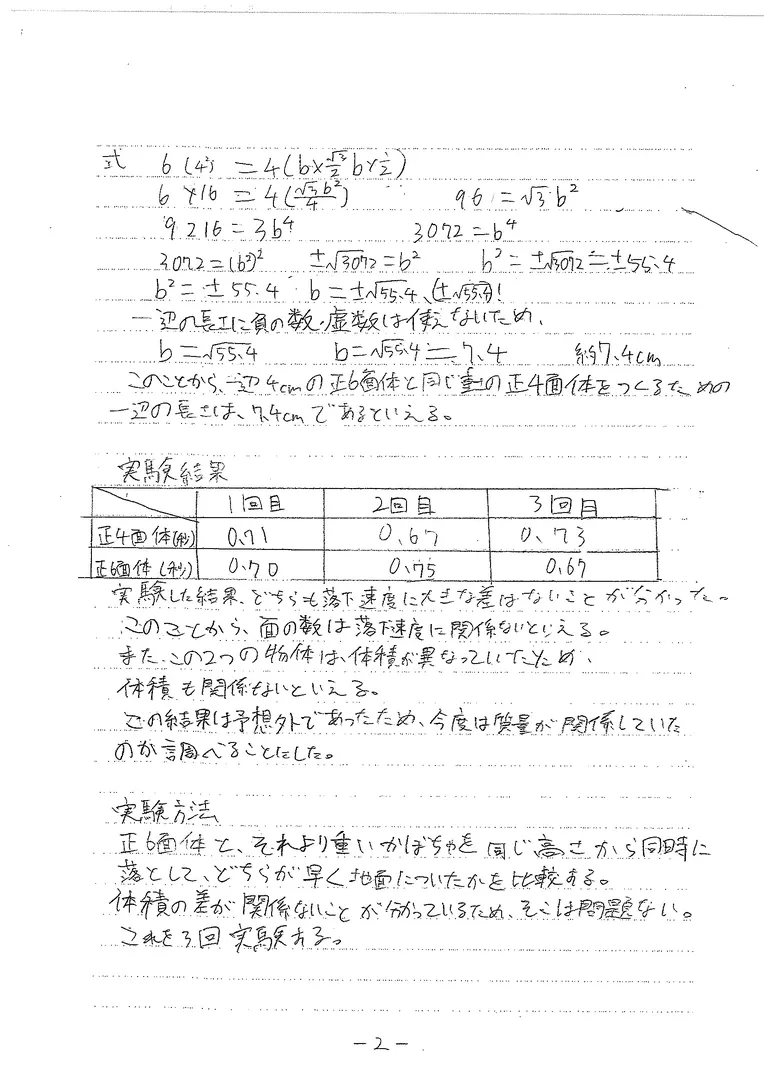 式 6(4²) = 4(b×√3/2 b×1/2)
6×16 = 4(√3b²/4) 96 = √3b²
9216 = 3b⁴ 3072 = b⁴
3072 = (b²)² ±√3072 = b² b² = ±√3072 = ±55.4
b² = ±55.4 b = ±√55.4、(±√55.4)i
一辺の長さに負の数・虚数は使えないため、
b = √55.4 b = √55.4 = 7.4 約7.4cm
このことから、一辺4cmの正6面体と同じ重の正4面体をつくるための
一辺の長さは、7.4cmであるといえる。
実験結果
1回目 2回目 3回目
正4面体(秒) 0.71 0.67 0.73
正6面体(秒) 0.70 0.75 0.67
実験した結果、どちらも落下速度に大きな差はないことが分かった。
このことから、面の数は落下速度に関係ないといえる。
また、この2つの物体は、体積が異なっていたため、
体積も関係ないといえる。
この結果は予想外であったため、今度は質量が関係していた
のか調べることにした。
実験方法
正6面体と、それより重いかぼちゃを同じ高さから同時に
落として、どちらが早く地面についたかを比較する。
体積の差が関係ないことが分かっているため、そこは問題ない。
これを3回実験する。
-2-